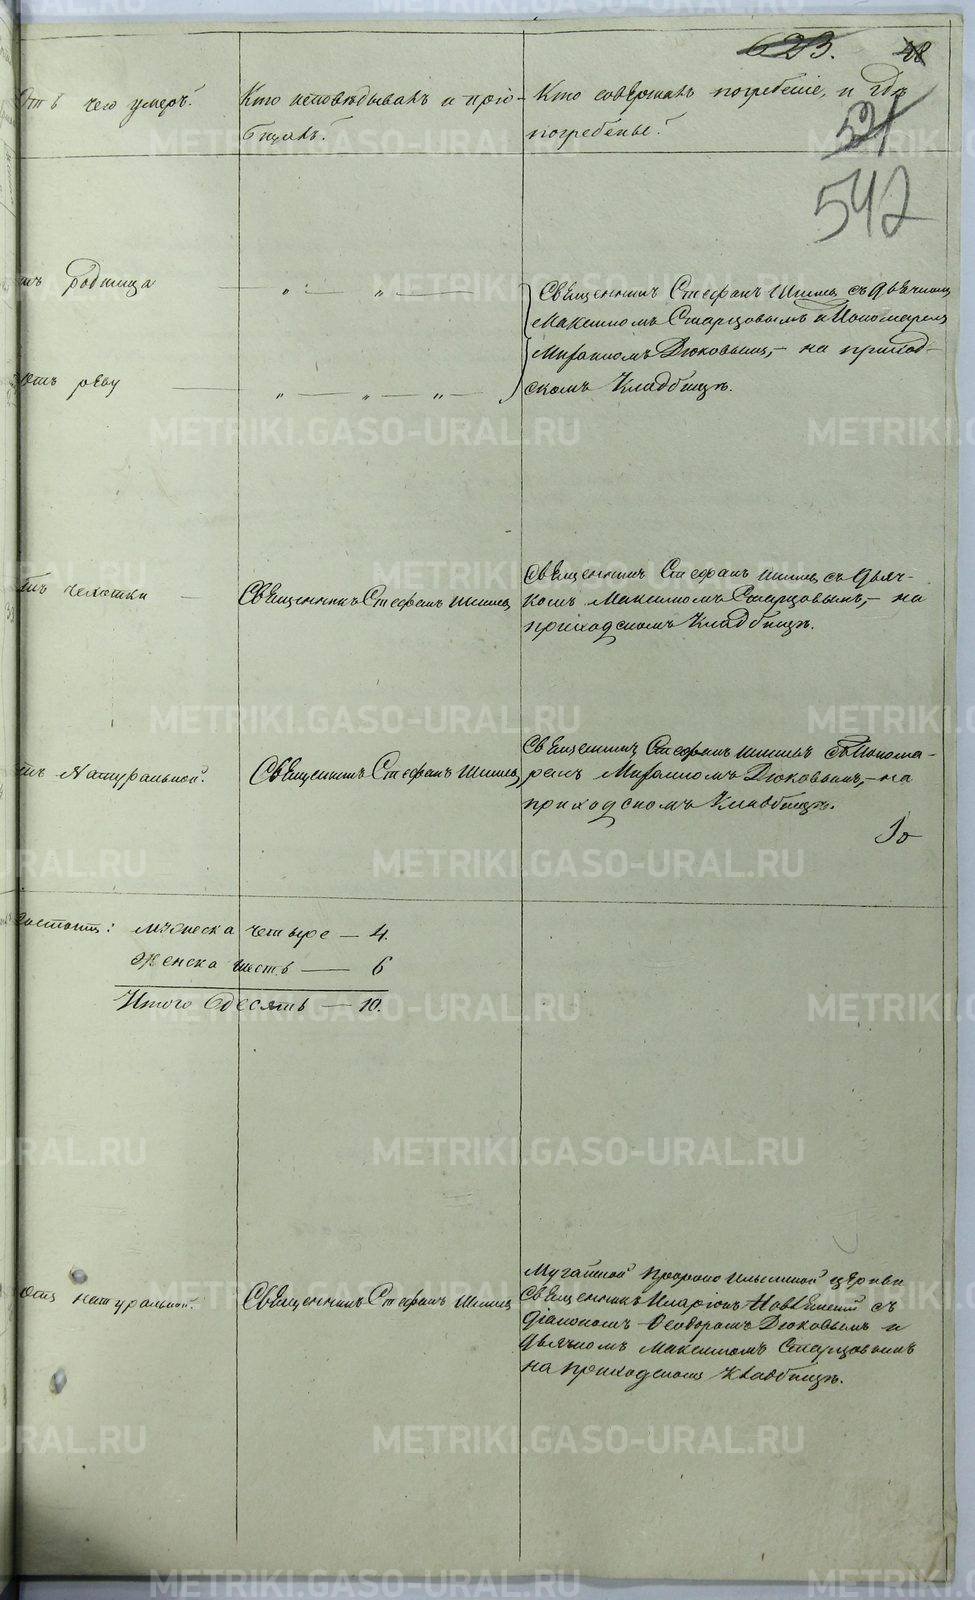 623. 48
Отъ чего умеръ.
Кто исповѣдывалъ и пріо-
бщалъ.
Кто совершалъ погребеніе, и гдѣ
погребены.
521
542
отъ родимца — „ — „ —
Священникъ Стефанъ Шишевъ съ дьячкомъ
Максимомъ Старцовымъ и Пономаремъ
Михаиломъ Дюковымъ, - на приход-
скомъ Кладбищѣ.
отъ реву — „ — „ — „ —
отъ чахотки —
Священникъ Стефанъ
Священникъ Стефанъ съ дьяч-
комъ Максимомъ Старцовымъ, - на
приходскомъ Кладбищѣ.
отъ Натуральной.
Священникъ Стефанъ
Священникъ Стефанъ съ Понома-
ремъ Михаиломъ Дюковымъ, - на
приходскомъ Кладбищѣ.
мужеска четыре — 4.
Женска шесть — 6
Итого десять — 10.
отъ натуральной.
Священникъ Стефанъ
Мугайской Пророко Ильинской церкви
Священникъ Иларіонъ съ
Діакономъ Ѳеодоромъ Дюковымъ и
Дьячкомъ Максимомъ Старцовымъ
на приходскомъ Кладбищѣ.
METRIKI.GASO-URAL.RU